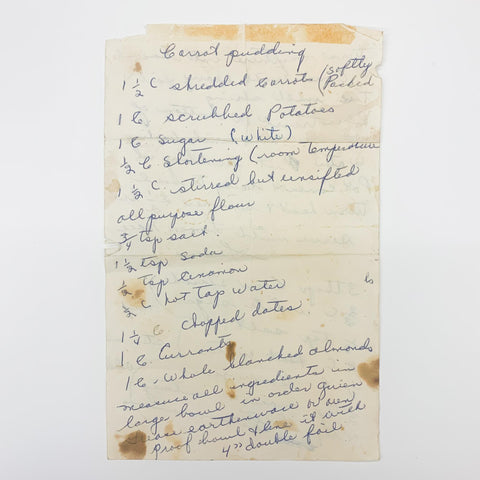 Carrot pudding
1 1/2 C shredded Carrots (softly Packed
1 C. scrubbed Potatoes
1 C Sugar (White)
1/2 C Shortening (room temperature
1 1/2 C. stirred but unsifted
all purpose flour
3/4 tsp salt.
1 1/2 tsp soda
1/2 tsp Cinamon
1/2 C hot tap water
1 1/4 C chopped dates
1 C. Currants
1 C. Whole blanched almonds
measure all ingredients in
large bowl in order given
earthenware or oven
proof bowl & line it with
4" double foil